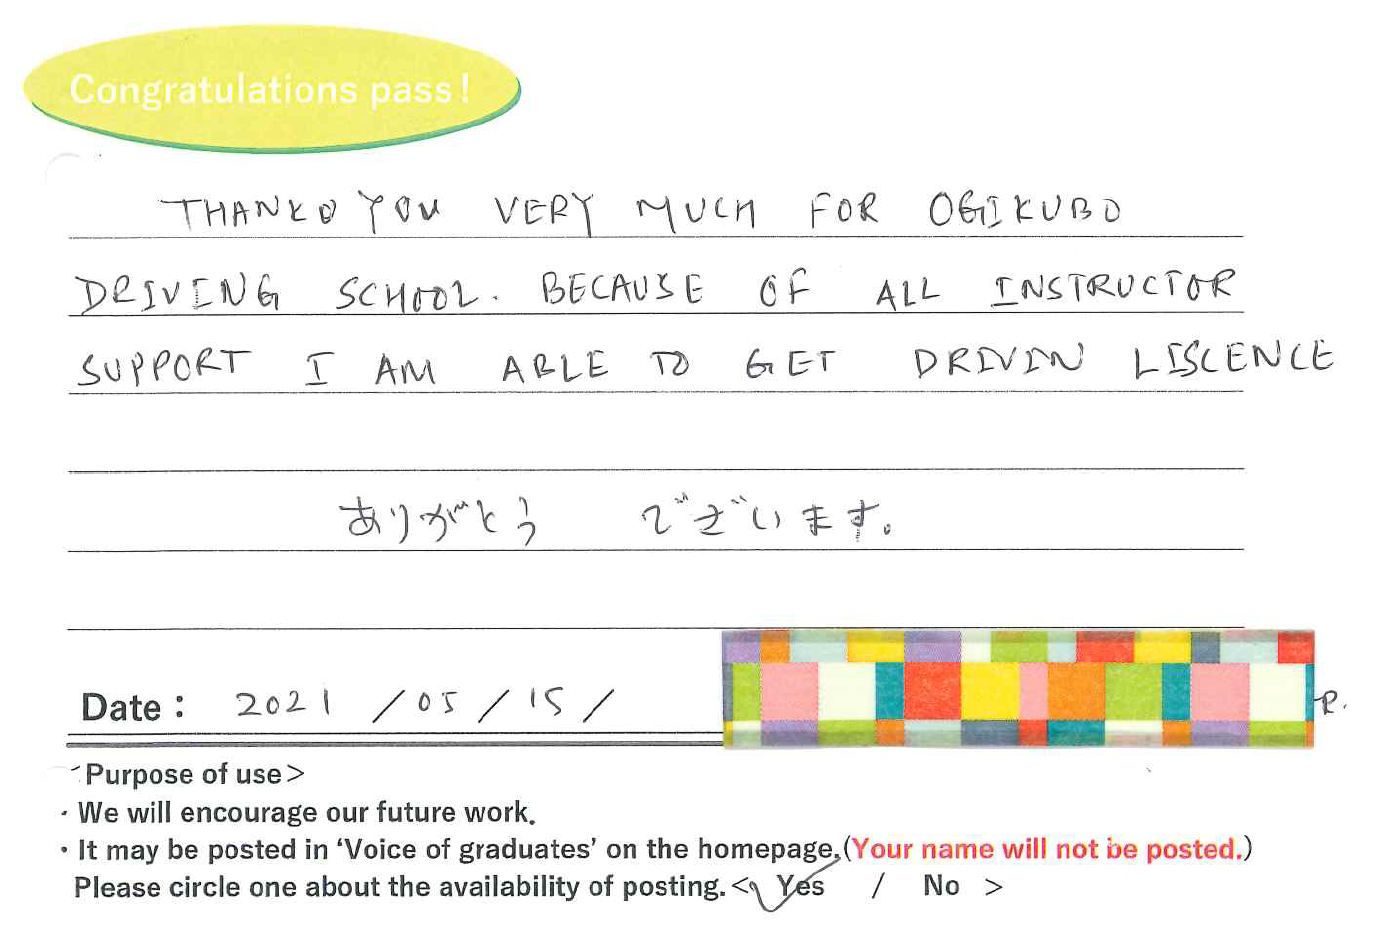 Congratulations pass!
THANKO YOU VERY MUCH FOR OGIKUBO
DRIVING SCHOOL. BECAUSE OF ALL INSTRUCTOR
SUPPORT I AM ABLE TO GET DRIVIN LISCENCE
ありがとう でざいます。
Date: 2021 /05 / 15 /
R.
Purpose of use>
・We will encourage our future work.
・It may be posted in ‘Voice of graduates’ on the homepage.(Your name will not be posted.)
Please circle one about the availability of posting.< Yes / No >